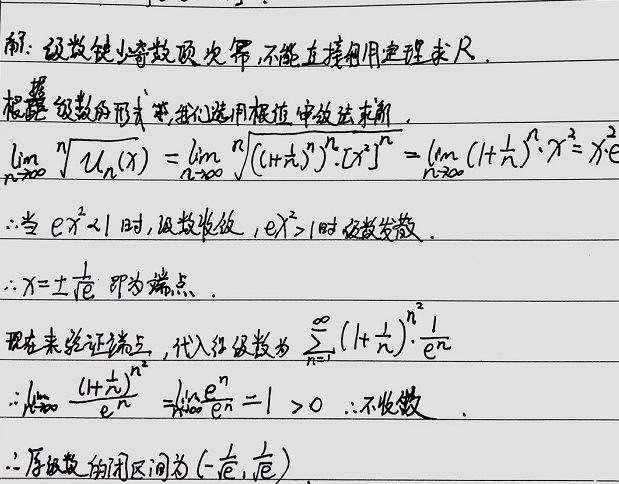 解: 级数缺少奇数项次幂,不能直接利用定理求R.
根据级数的形式,我们选用根值审敛法求解.
lim_{n→∞} ⁿ√(u_n(x)) = lim_{n→∞} ⁿ√(((1+1/n)^n)^n·[x²]^n) = lim_{n→∞} (1+1/n)^n·x² = x²·e
∴当 ex²<1 时,级数收敛, ex²>1时级数发散.
∴x=±1/√e 即为端点.
现在来验证端点,代入得级数为 ∑_{n=1}^{∞} (1+1/n)^{n²}·1/e^n
∴lim_{n→∞} (1+1/n)^{n²}/e^n = lim_{n→∞} e^n/e^n = 1 >0 ∴不收敛.
∴原级数的闭区间为(-1/√e, 1/√e)